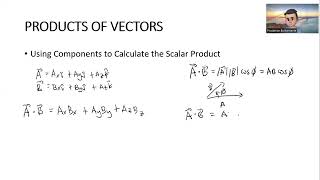 PRODUCTS OF VECTORS
• Using Components to Calculate the Scalar Product
A⃗ = Axî + Ayĵ + Azk̂
B⃗ = Bxî + Byĵ + Bzk̂
A⃗ · B⃗ = AxBx + AyBy + AzBz
A⃗ · B⃗ = |A⃗||B⃗| cos ϕ = AB cos ϕ
B
ϕ
A
A⃗ · B⃗ = A